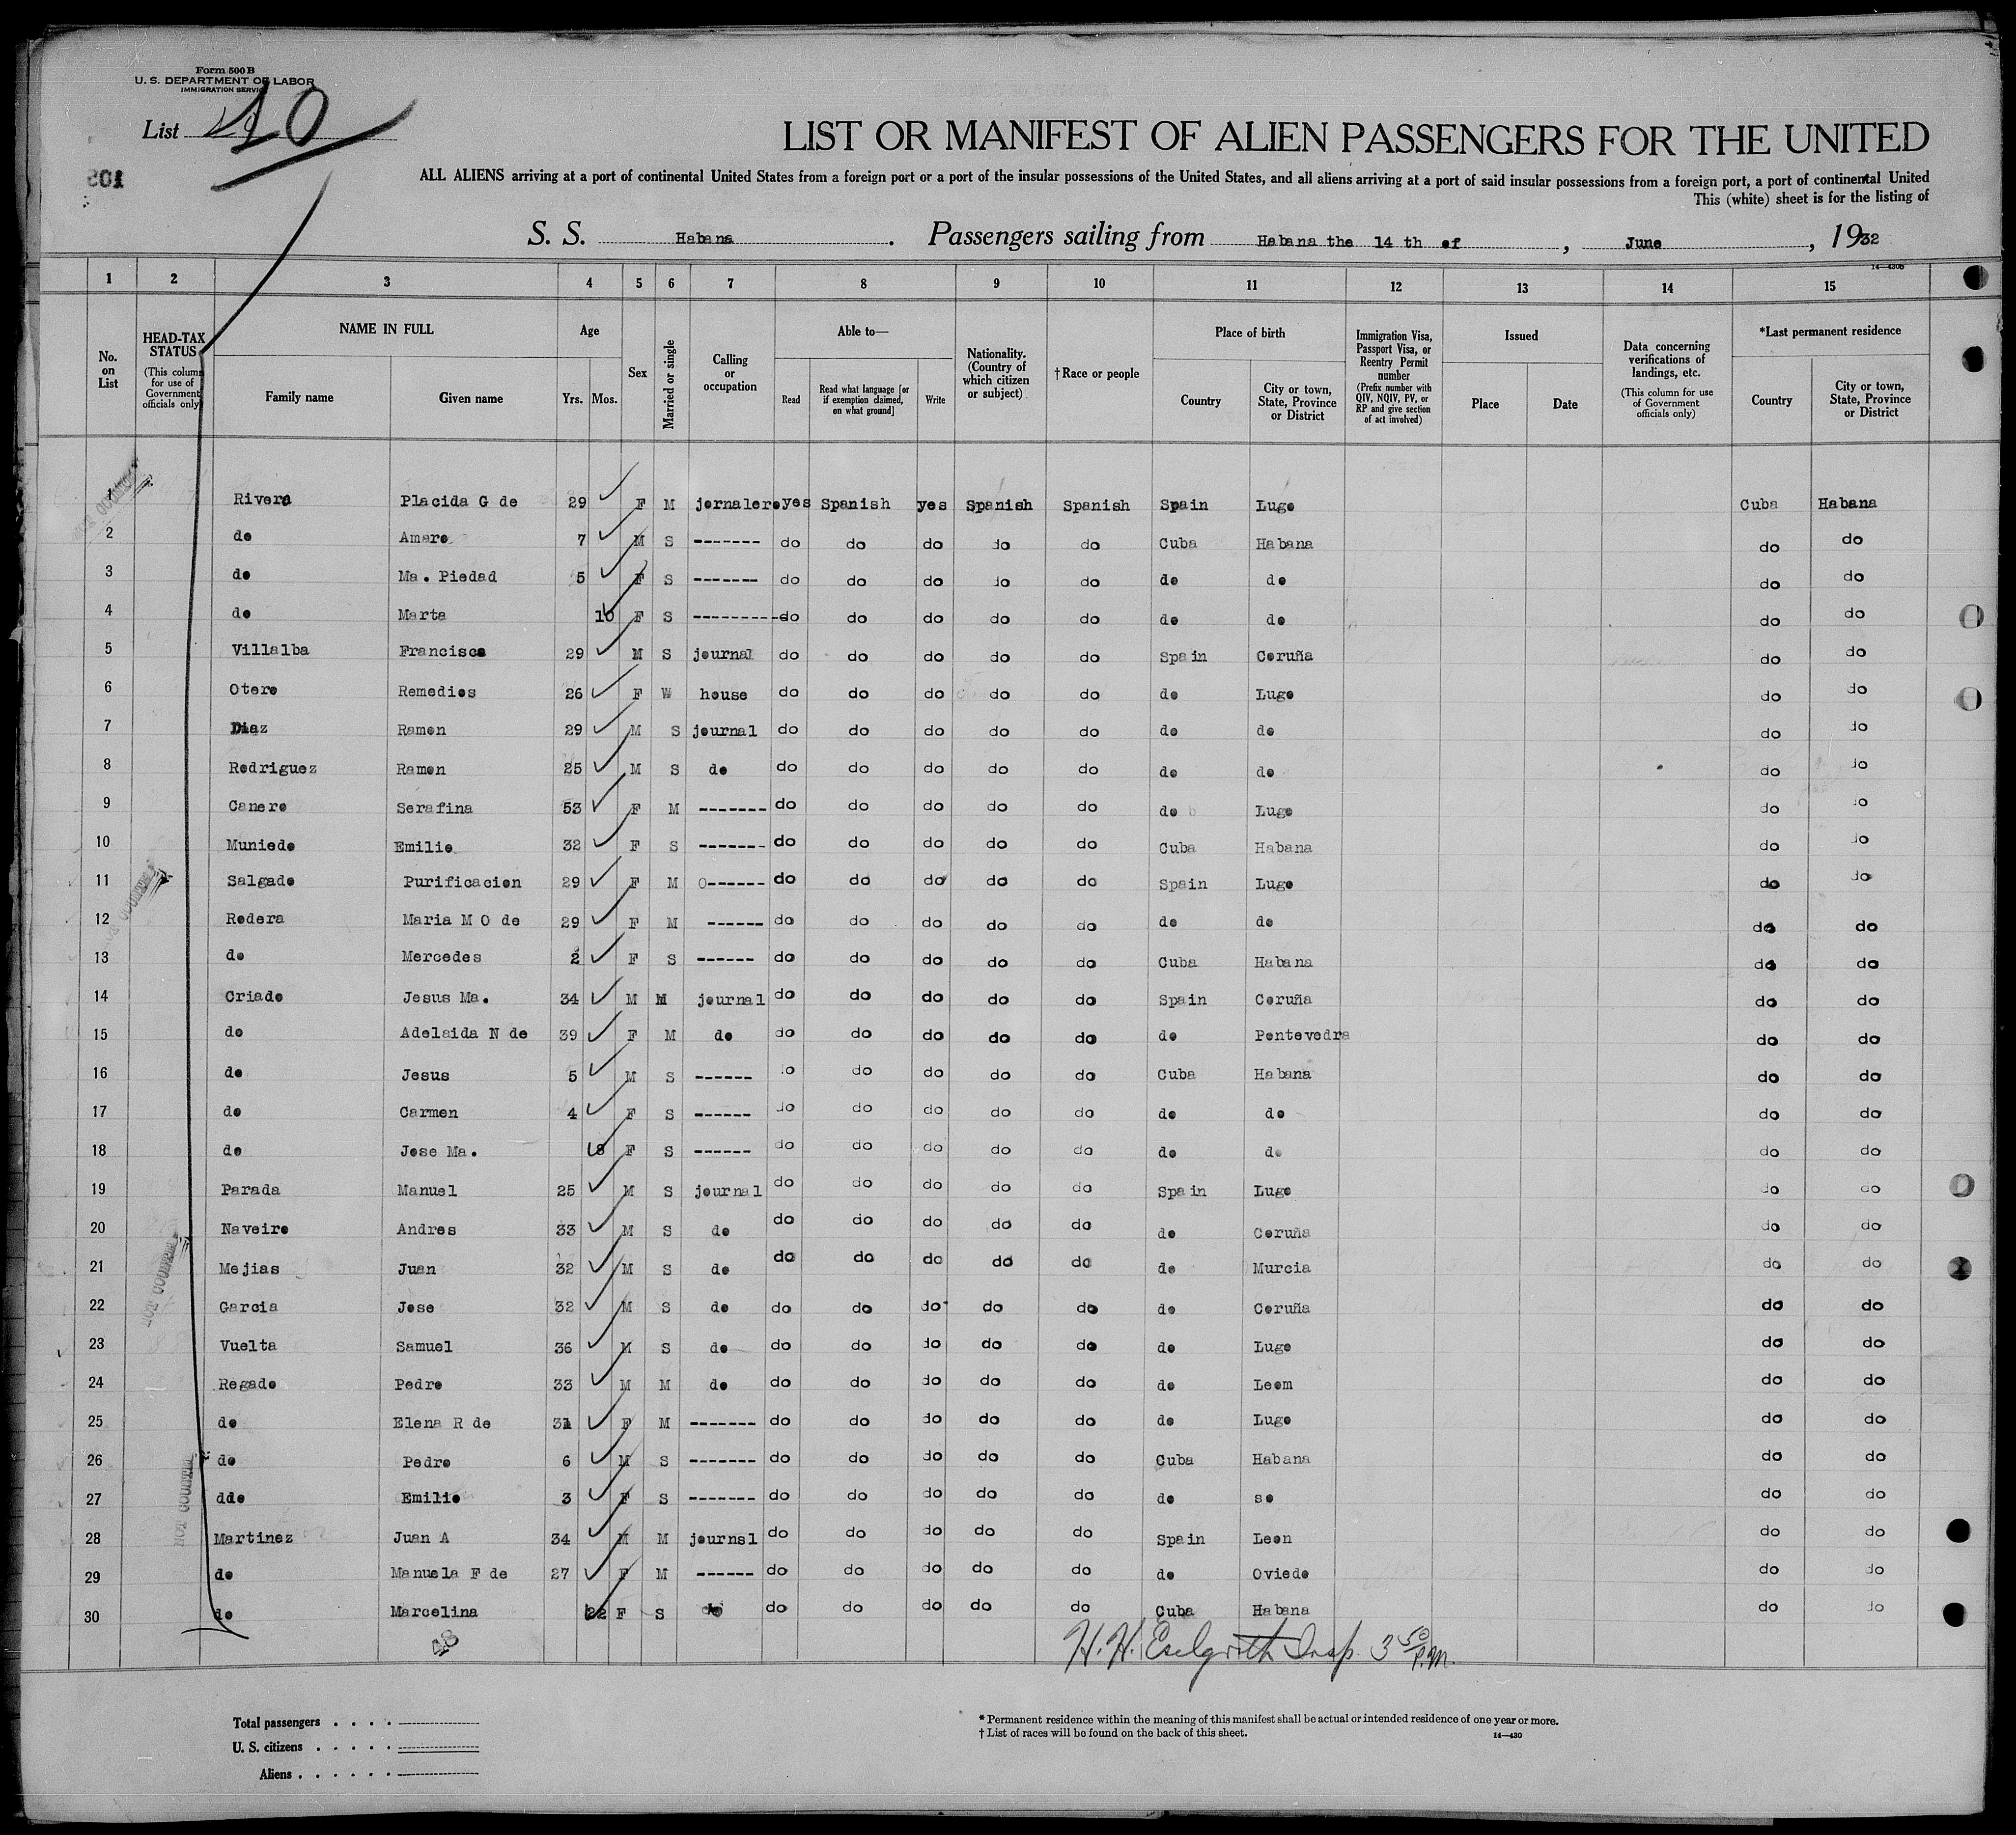 Form 500 B
U. S. DEPARTMENT OF LABOR
IMMIGRATION SERVICE
List 10
LIST OR MANIFEST OF ALIEN PASSENGERS FOR THE UNITED
ALL ALIENS arriving at a port of continental United States from a foreign port or a port of the insular possessions of the United States, and all aliens arriving at a port of said insular possessions from a foreign port, a port of continental United
This (white) sheet is for the listing of
S. S. Habana . Passengers sailing from Habana the 14 th of , June , 1932
14—430B
1 2 3 4 5 6 7 8 9 10 11 12 13 14 15
No. on List
HEAD-TAX STATUS (This column for use of Government officials only)
NAME IN FULL Family name Given name
Age Yrs. Mos.
Sex
Married or single
Calling or occupation
Able to— Read Read what language [or if exemption claimed, on what ground] Write
Nationality. (Country of which citizen or subject)
†Race or people
Place of birth Country City or town, State, Province or District
Immigration Visa, Passport Visa, or Reentry Permit number (Prefix number with QIV, NQIV, PV, or RP and give section of act involved)
Issued Place Date
Data concerning verifications of landings, etc. (This column for use of Government officials only)
*Last permanent residence Country City or town, State, Province or District
1 Rivera Placida G de 29 F M jornalero yes Spanish yes Spanish Spanish Spain Lugo Cuba Habana
2 do Amaro 7 M S ------- do do do do do Cuba Habana do do
3 do Ma. Piedad 5 F S ------- do do do do do do do do do
4 do Marta 10 F S ---------- do do do do do do do do do
5 Villalba Francisco 29 M S journal do do do do do Spain Coruña do do
6 Otero Remedios 26 F W house do do do do do do Lugo do do
7 Diaz Ramon 29 M S journal do do do do do do do do do
8 Rodriguez Ramon 25 M S do do do do do do do do do do
9 Canero Serafina 53 F M ------- do do do do do do Lugo do do
10 Muniedo Emilio 32 F S ------- do do do do do Cuba Habana do do
11 Salgado Purificacion 29 F M 0------ do do do do do Spain Lugo do do
12 Rodera Maria M O de 29 F M ------ do do do do do do do do do
13 do Mercedes 2 F S ------ do do do do do Cuba Habana do do
14 Criado Jesus Ma. 34 M M journal do do do do do Spain Coruña do do
15 do Adelaida N de 39 F M do do do do do do do Pontevedra do do
16 do Jesus 5 M S ------ do do do do do Cuba Habana do do
17 do Carmen 4 F S ------ do do do do do do do do do
18 do Jose Ma. 8 F S ------ do do do do do do do do do
19 Parada Manuel 25 M S journal do do do do do Spain Lugo do do
20 Naveiro Andres 33 M S do do do do do do do Coruña do do
21 Mejias Juan 32 M S do do do do do do do Murcia do do
22 Garcia Jose 32 M S do do do do do do do Coruña do do
23 Vuelta Samuel 36 M S do do do do do do do Lugo do do
24 Regado Pedro 33 M M do do do do do do do Leom do do
25 do Elena R de 31 F M ------- do do do do do do Lugo do do
26 do Pedro 6 M S ------- do do do do do Cuba Habana do do
27 ddo Emilio 3 F S ------- do do do do do do so do do
28 Martinez Juan A 34 M M journsl do do do do do Spain Leon do do
29 do Manuela F de 27 F M ------ do do do do do do Oviedo do do
30 do Marcelina 22 F S do do do do do do Cuba Habana do do
48
Insp. 3 50 P.M.
Total passengers . . . .
U. S. citizens . . . . .
Aliens . . . . . .
* Permanent residence within the meaning of this manifest shall be actual or intended residence of one year or more.
† List of races will be found on the back of this sheet. 14—430